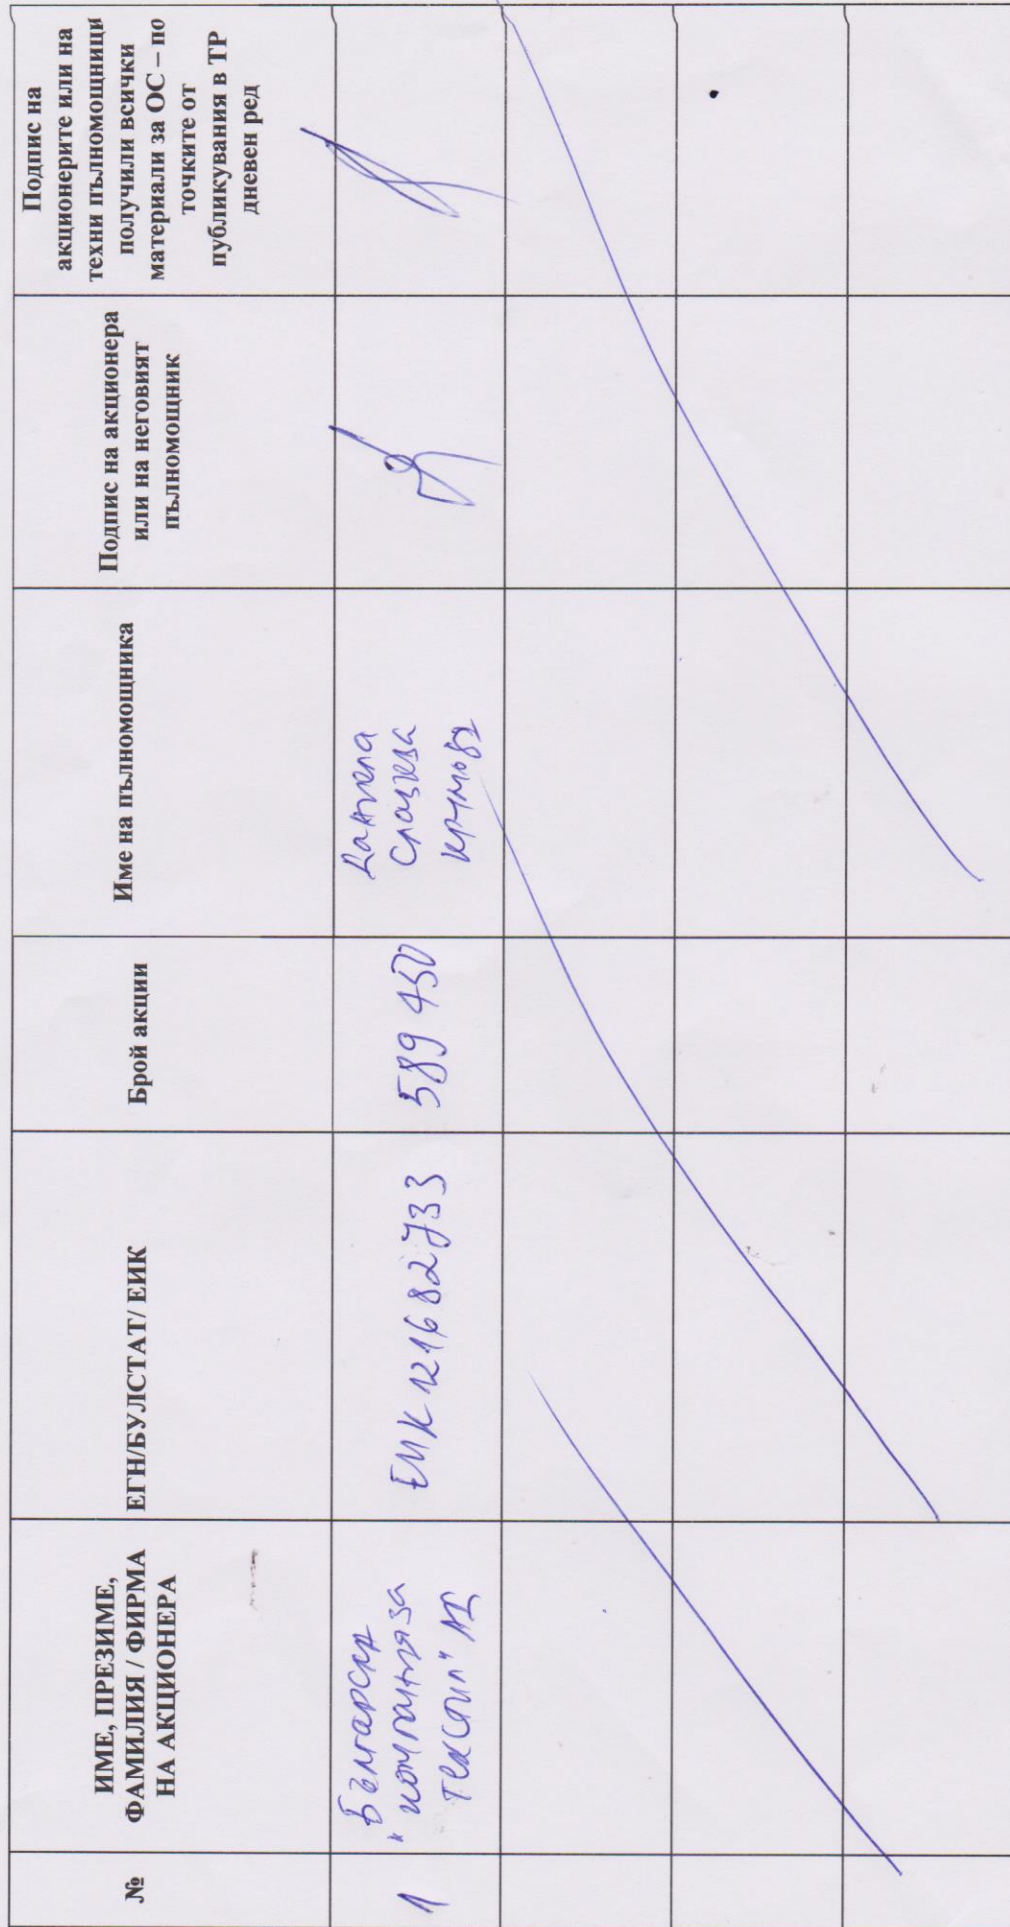 №
ИМЕ, ПРЕЗИМЕ,
ФАМИЛИЯ / ФИРМА
НА АКЦИОНЕРА
ЕГН/БУЛСТАТ/ ЕИК
Брой акции
Име на пълномощника
Подпис на акционера
или на неговият
пълномощник
Подпис на
акционерите или на
техни пълномощници
получили всички
материали за ОС – по
точките от
публикувания в ТР
дневен ред
1
Българска
"компания за
текстил" АД
ЕИК 121682733
589 450
Даниела
Славева
Крумова